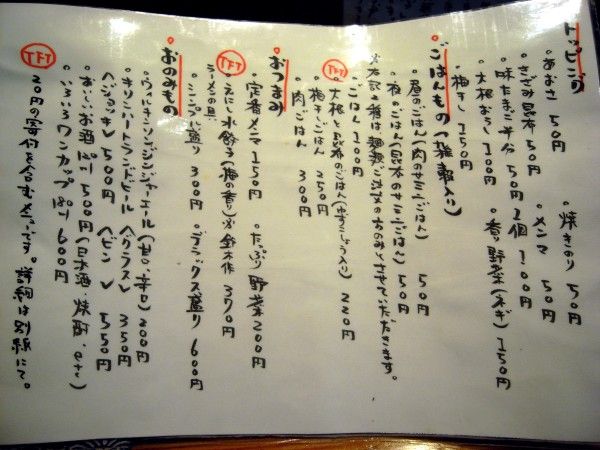 トッピング
・あおさ 50円 ・焼きのり 50円
・きざみ昆布 50円 ・メンマ 50円
・味たまご半体 50円 1個 100円
・大根おろし 100円 ・香り野菜(ねぎ) 150円
・梅干し 150円
・ごはんもの(雑穀入り)
・鳥のごはん(肉のせミニごはん) 50円
・梅のごはん(昆布のせミニごはん) 50円
・ごはん 100円
TFT ・大根と昆布のごはん(ゆずこしょう入り) 220円
・梅干しごはん 250円
・肉ごはん 300円
・おつまみ
・定番メンマ 150円 ・たっぷり野菜 200円
TFT ・えにし水餃子(梅の香り) 370円
ラーメンの具
・ミニ盛り 300円 ・デラックス盛り 600円
・おのみもの
・ウィルキンソンジンジャエール(甘・辛口) 200円
・キリンハートランドビール 〈グラス〉 350円
〈ジョッキ〉 500円 〈ビン〉 550円
・おいしいお酒 500円(日本酒 焼酎 . etc)
・いろいろワンカップ 600円
TFT 20円の寄付を含むメニューです。詳細は別紙にて。